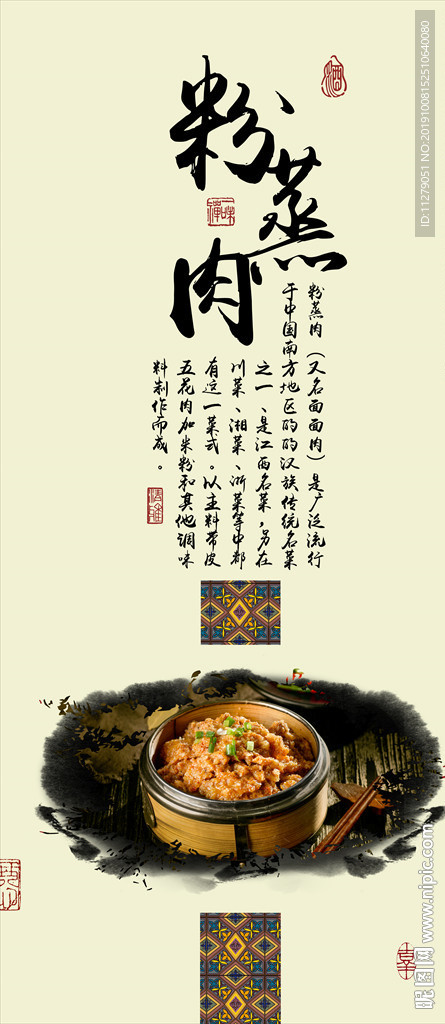 粉蒸肉
粉蒸肉（又名面面肉）是广泛流行
于中国南方地区的的汉族传统名菜
之一、是江西名菜，另在
川菜、湘菜、浙菜等中都
有这一菜式。以主料带皮
五花肉加米粉和其他调味
料制作而成。
ID:11279051 NO:20191008152510640080
昵图网 www.nipic.com